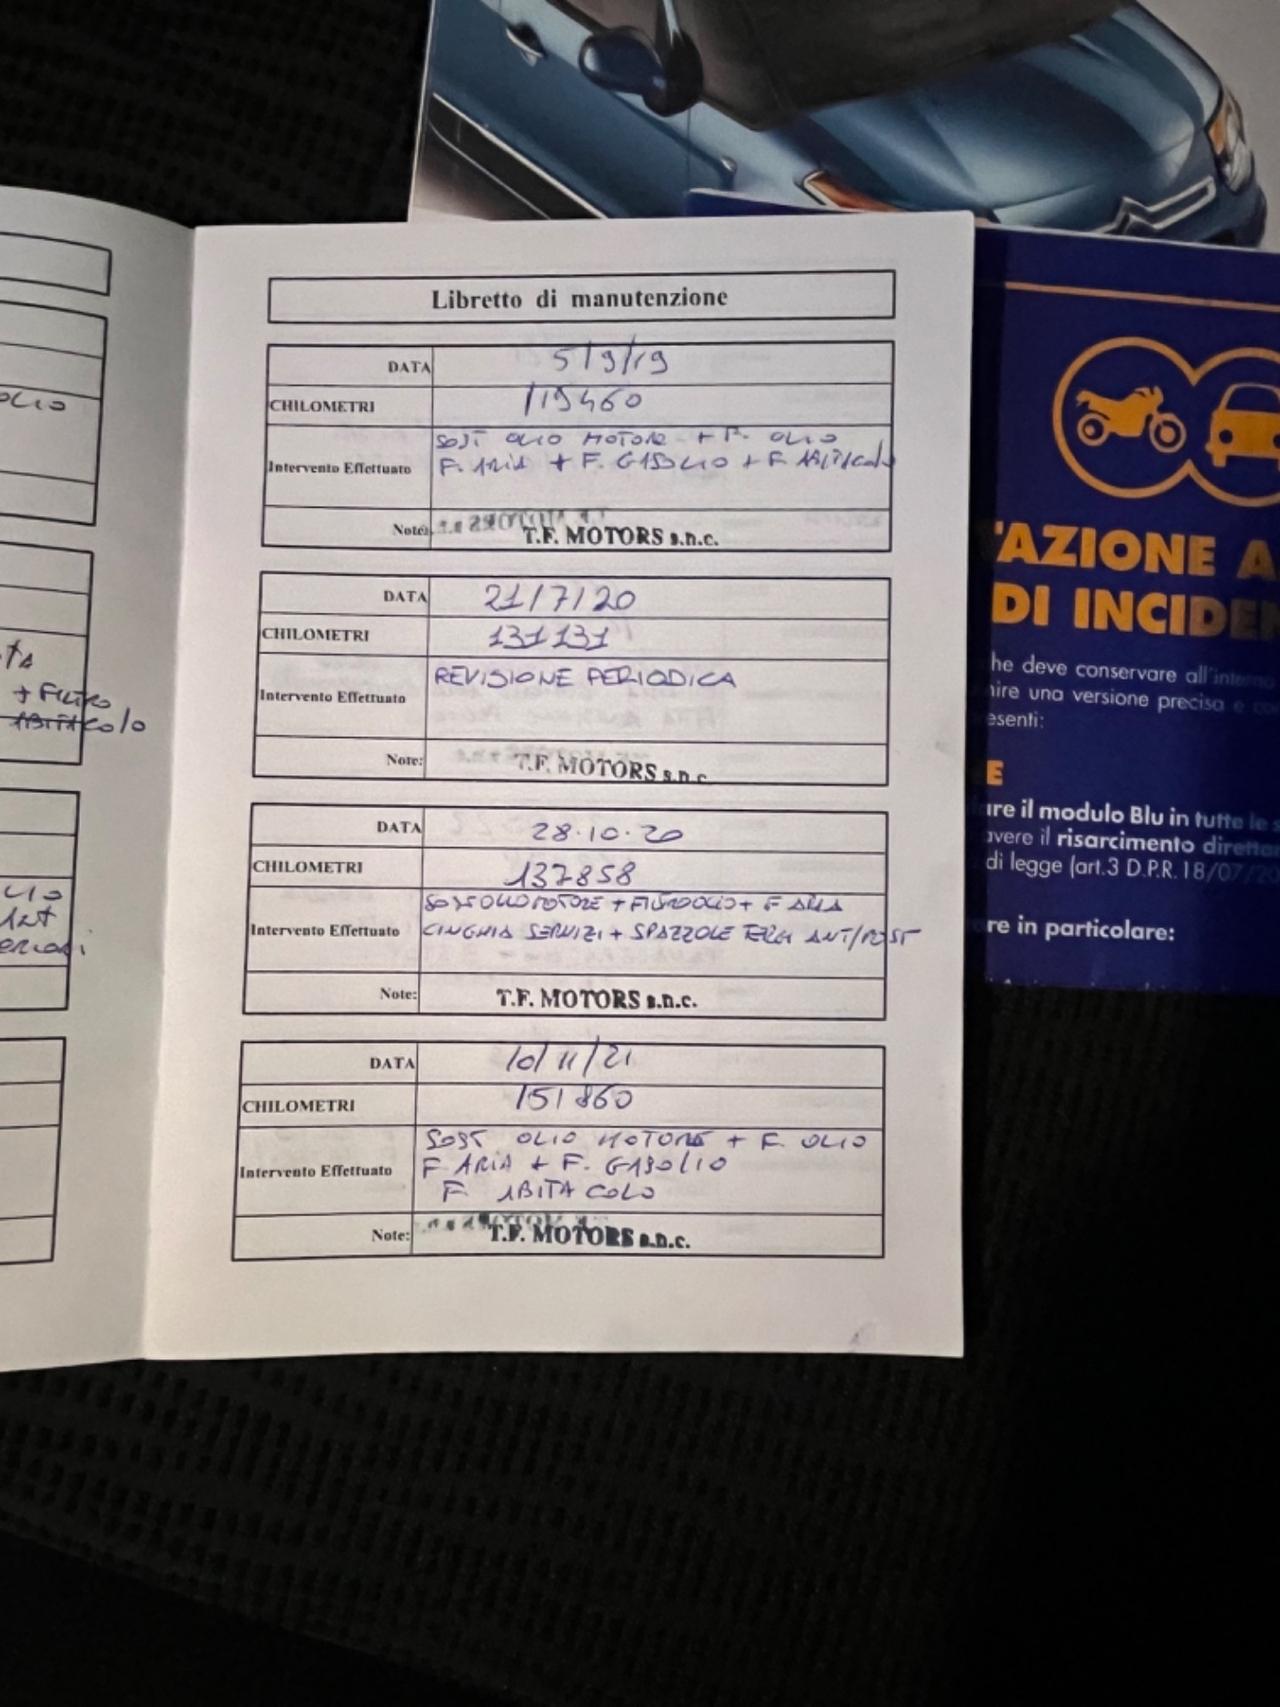 OLIO
+ FILTRO
ABITACOLO
Libretto di manutenzione
DATA 5/9/19
CHILOMETRI 119460
Intervento Effettuato
SOST OLIO MOTORE + F. OLIO
F. ARIA + F. GASOLIO + F. ABITACOLO
Note: T.F. MOTORS s.n.c.
DATA 21/7/20
CHILOMETRI 131131
Intervento Effettuato REVISIONE PERIODICA
Note: T.F. MOTORS s.n.c.
DATA 28.10.20
CHILOMETRI 137858
Intervento Effettuato
SOST OLIO MOTORE + FILTRO OLIO + F ARIA
CINGHIA SERVIZI + SPAZZOLE TERGI ANT/POST
Note: T.F. MOTORS s.n.c.
DATA 10/11/21
CHILOMETRI 151860
Intervento Effettuato
SOST OLIO MOTORE + F. OLIO
F ARIA + F. GASOLIO
F. ABITACOLO
Note: T.F. MOTORS s.n.c.
TAZIONE A
DI INCIDEN
he deve conservare all'interno
nire una versione precisa e
esenti:
E
are il modulo Blu in tutte le
avere il risarcimento diretto
di legge (art.3 D.P.R. 18/07/20
re in particolare: